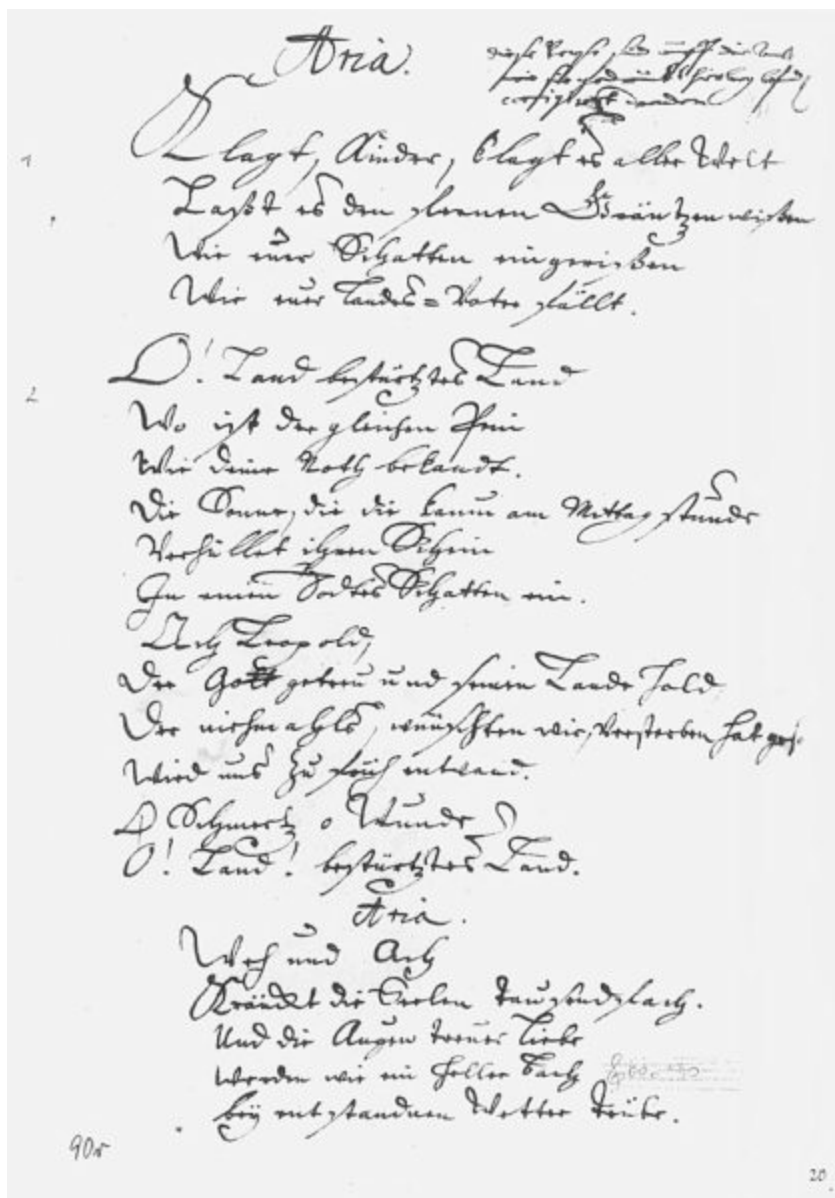 Aria.
Klagt, Kinder, klagt es aller Welt
1
Laßt es den fernen Gräntzen wißen
Wie euer Schatten eingerißen
Wie euer Landes-Vater fällt.
O! Land bestürtztes Land
2
Wo ist dergleichen Pein
Wie deine Noth bekandt.
Die Sonne, die die kaum am Mittag stunde
Verhüllet ihren Schein
In einen Todtes Schatten ein.
Ach Leopold,
Der Gott getreu und seinem Lande hold
Der niehmahls, wünschten wir, versterben hat
Wird uns zu früh entwand.
O Schmertz o Wunde
O! Land! bestürtztes Land.
Aria.
Weh und Ach
Kränckt die Seelen tausendfach.
Und die Augen treuer Liebe
Werden wie ein heller Bach
bey entstandnen Wetter trübe.
90r
20